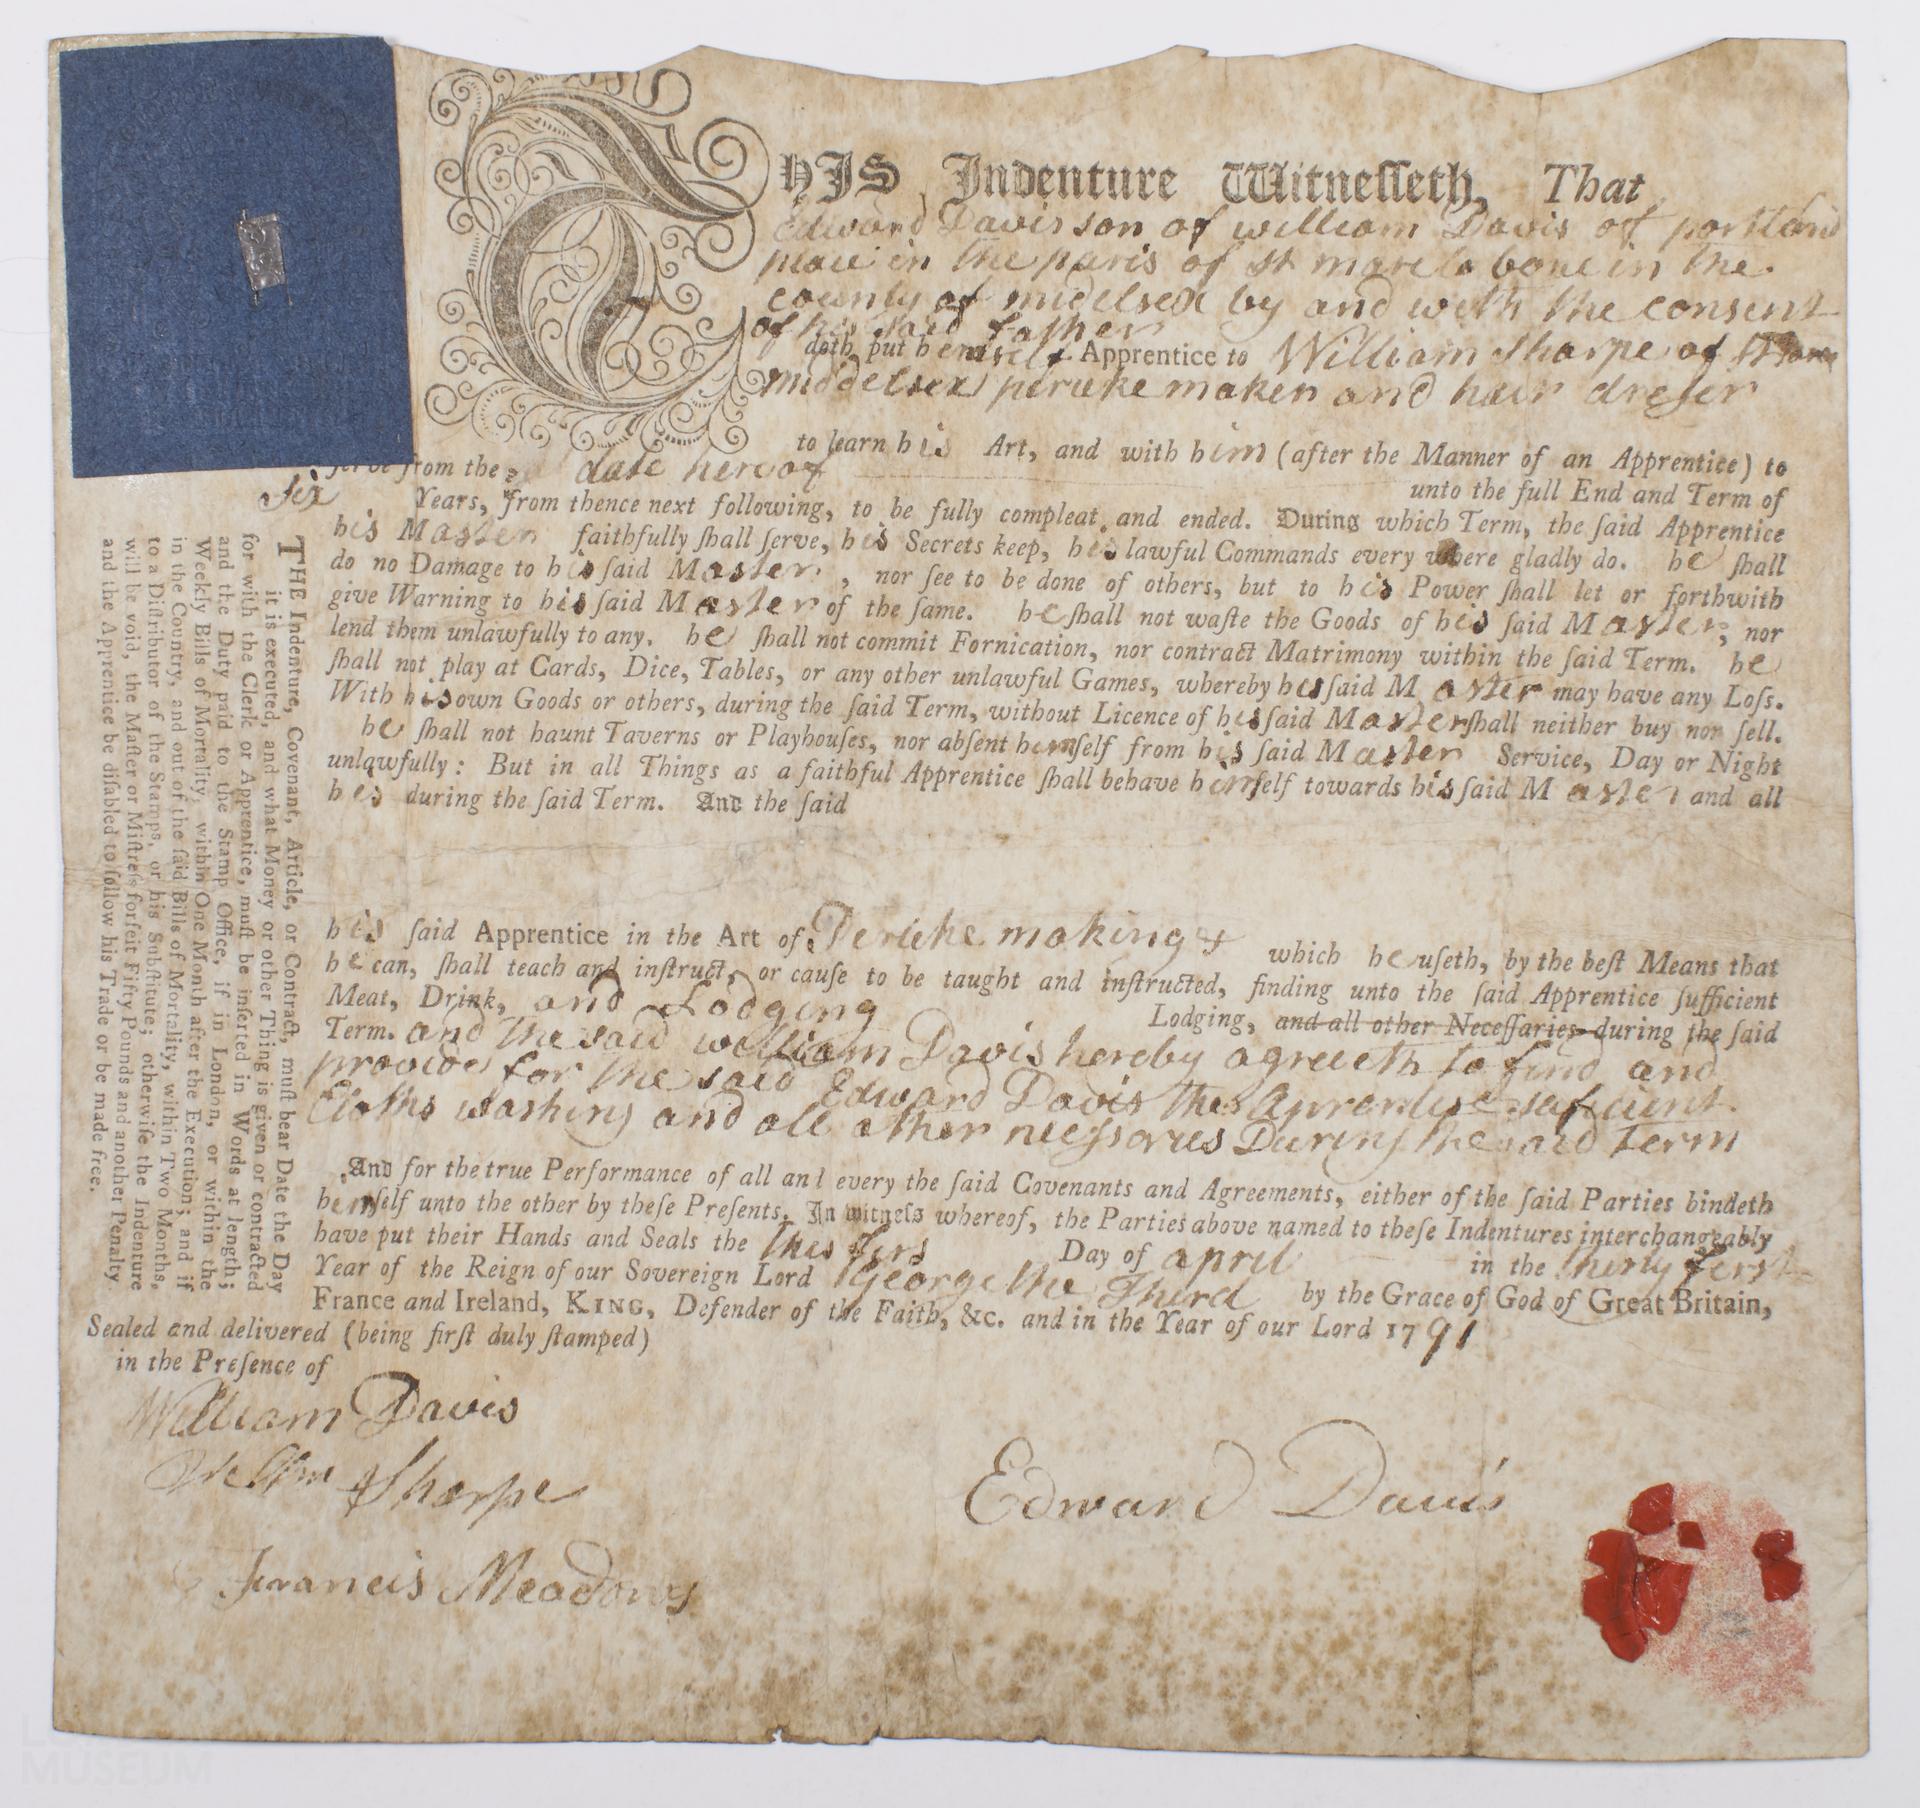 THIS Indenture Witneſſeth, That
Edward Davis son of william Davis of portland
place in the paris of st mareLebone in the
county of midelsex by and with the consent
of his said father
doth put hemself Apprentice to William Sharpe of
middelsex peruke maker and hair dreſer
to learn his Art, and with him (after the Manner of an Apprentice) to
ſerve from the date hereof unto the full End and Term of
Six Years, from thence next following, to be fully compleat and ended. During which Term, the ſaid Apprentice
his Master faithfully ſhall ſerve, his Secrets keep, his lawful Commands every where gladly do. he ſhall
do no Damage to his ſaid Master, nor ſee to be done of others, but to his Power ſhall let or forthwith
give Warning to his ſaid Master of the ſame. he ſhall not waſte the Goods of his ſaid Master, nor
lend them unlawfully to any. he ſhall not commit Fornication, nor contract Matrimony within the ſaid Term. he
ſhall not play at Cards, Dice, Tables, or any other unlawful Games, whereby his ſaid Master may have any Loſs.
With his own Goods or others, during the ſaid Term, without Licence of his ſaid Master ſhall neither buy nor ſell.
he ſhall not haunt Taverns or Playhouſes, nor abſent hemſelf from his ſaid Master Service, Day or Night
unlawfully: But in all Things as a faithful Apprentice ſhall behave hemſelf towards his ſaid Master and all
hes during the ſaid Term. And the ſaid
his ſaid Apprentice in the Art of Peruke making & which he uſeth, by the beſt Means that
he can, ſhall teach and inſtruct, or cauſe to be taught and inſtructed, finding unto the ſaid Apprentice ſufficient
Meat, Drink, and Lodging Lodging, and all other Neceſſaries during the ſaid
Term. and the said william Davis hereby agreeth to find and
provide for the said Edward Davis the Aprentise suficient
Cloths washing and all other necſsaries During the said Term
And for the true Performance of all and every the ſaid Covenants and Agreements, either of the ſaid Parties bindeth
hemſelf unto the other by theſe Preſents. In witneſs whereof, the Parties above named to theſe Indentures interchangeably
have put their Hands and Seals the this fers Day of april in the therty ferst
Year of the Reign of our Sovereign Lord George the Third by the Grace of God of Great Britain,
France and Ireland, KING, Defender of the Faith, &c. and in the Year of our Lord 1791
Sealed and delivered (being firſt duly ſtamped)
in the Preſence of
William Davis
Willm Sharpe
Francis Meadows
Edward Davis
THE Indenture, Covenant, Article, or Contract, muſt bear Date the Day
it is executed, and what Money or other Thing is given or contracted
for with the Clerk or Apprentice, muſt be inſerted in Words at length;
and the Duty paid to the Stamp Office, if in London, or within the
Weekly Bills of Mortality, within One Month after the Execution; and if
in the Country, and out of the ſaid Bills of Mortality, within Two Months,
to a Diſtributor of the Stamps, or his Subſtitute; otherwiſe the Indenture
will be void, the Maſter or Miſtreſs forfeit Fifty Pounds and another Penalty
and the Apprentice be diſabled to follow his Trade or be made free.
MUSEUM